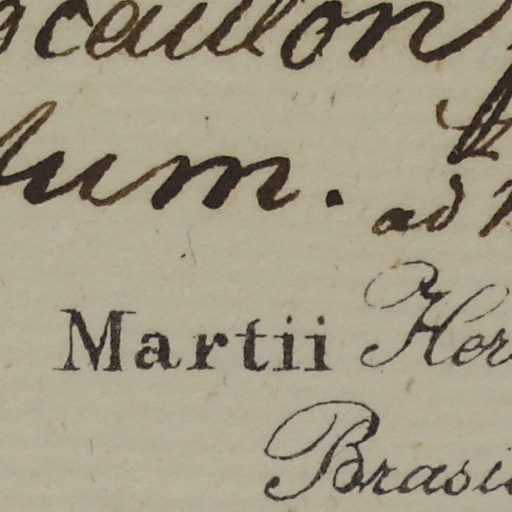 ocaulon
lum.
ad
Martii Her
Brasi